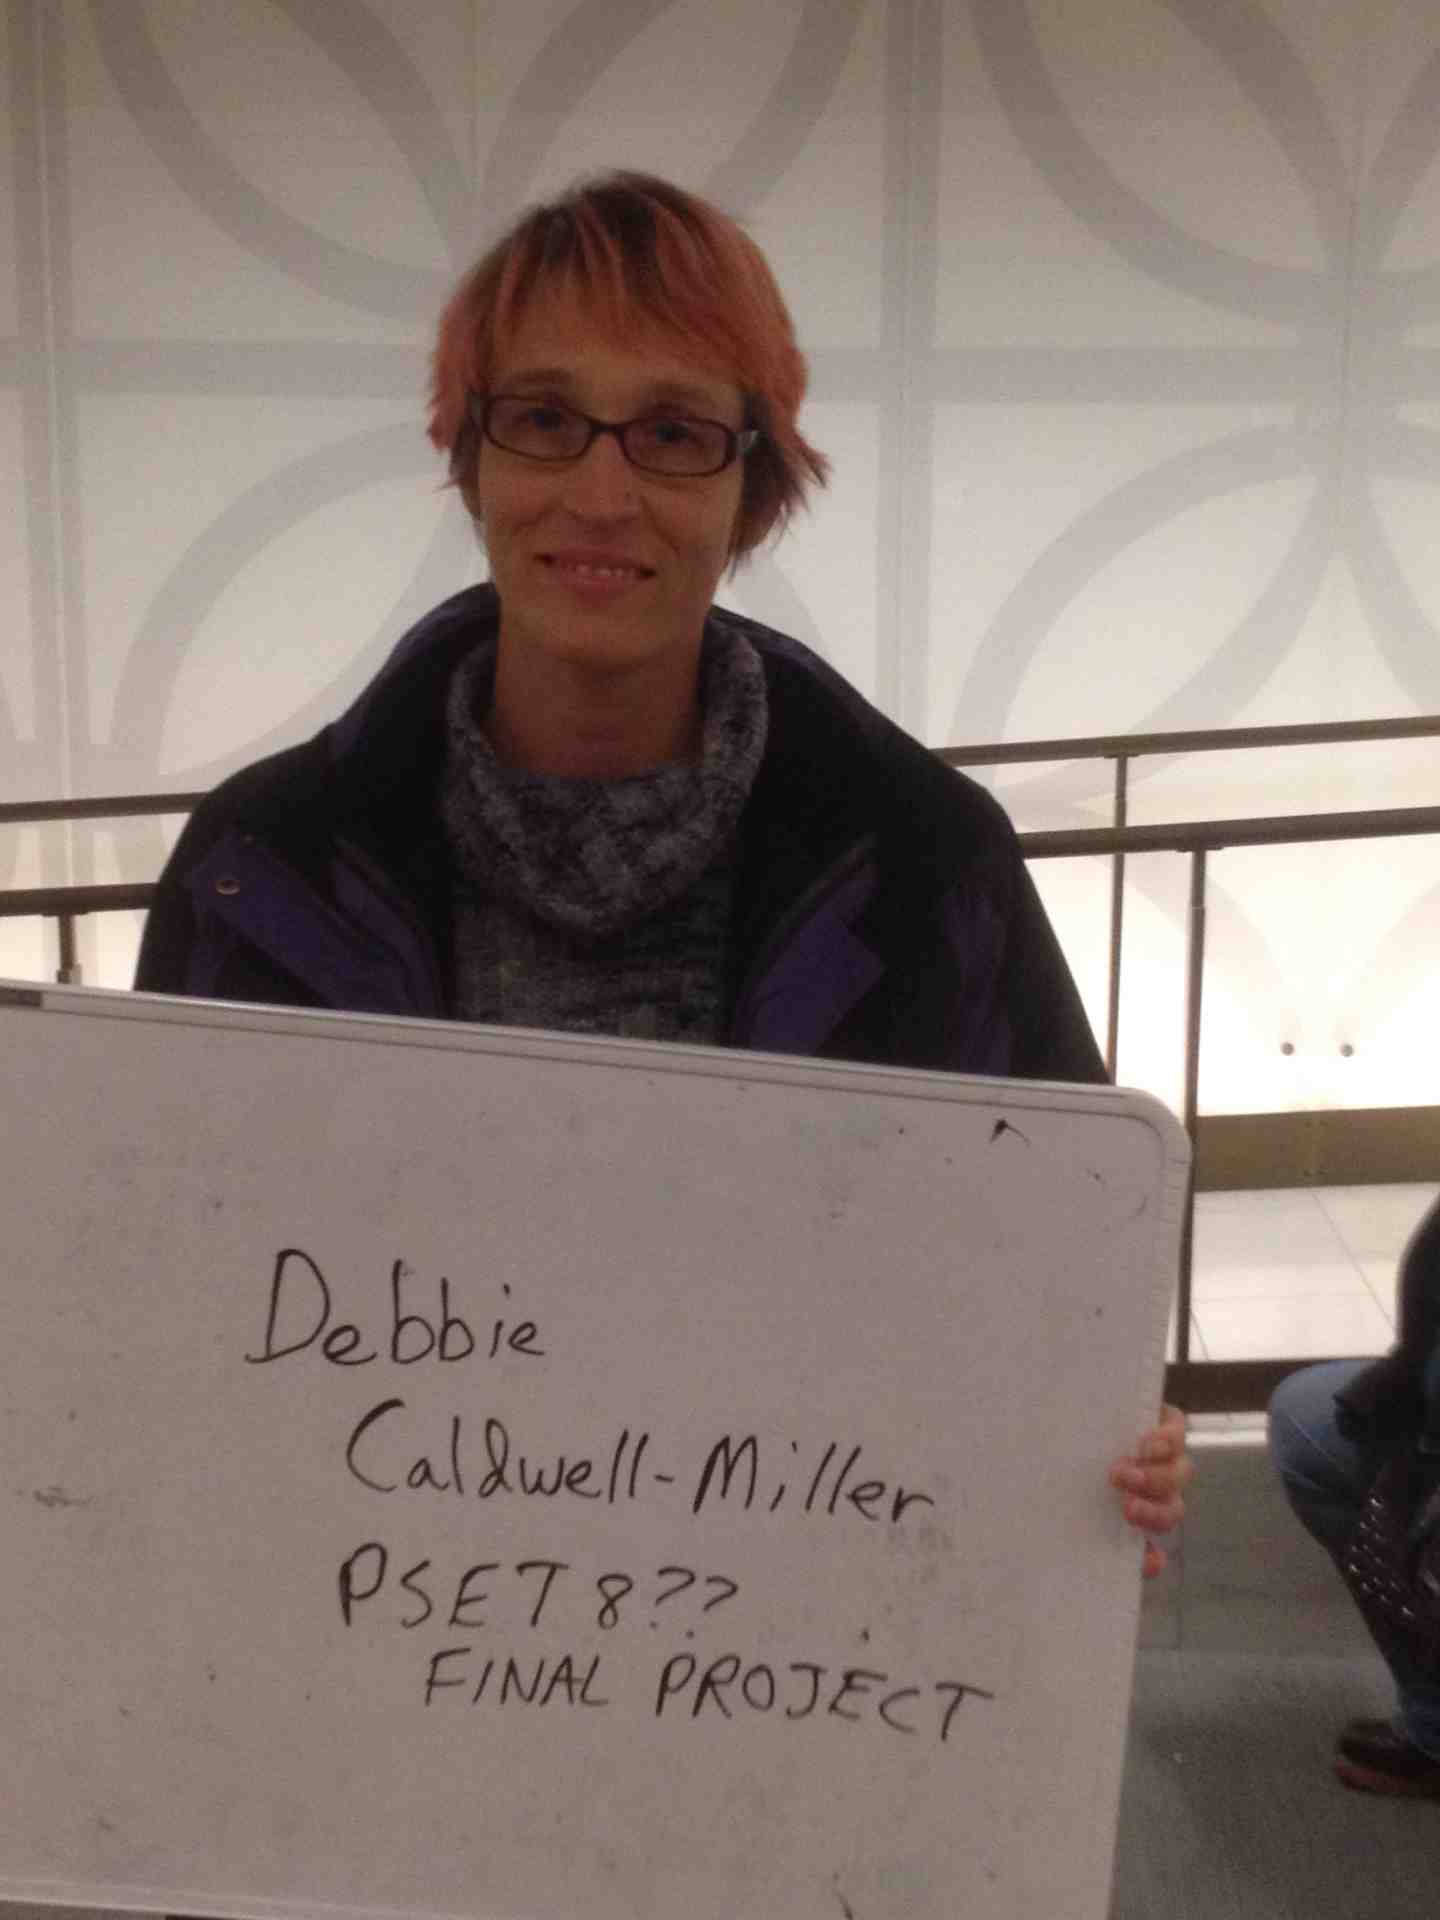 Debbie
Caldwell-Miller
PSET 8??
FINAL PROJECT